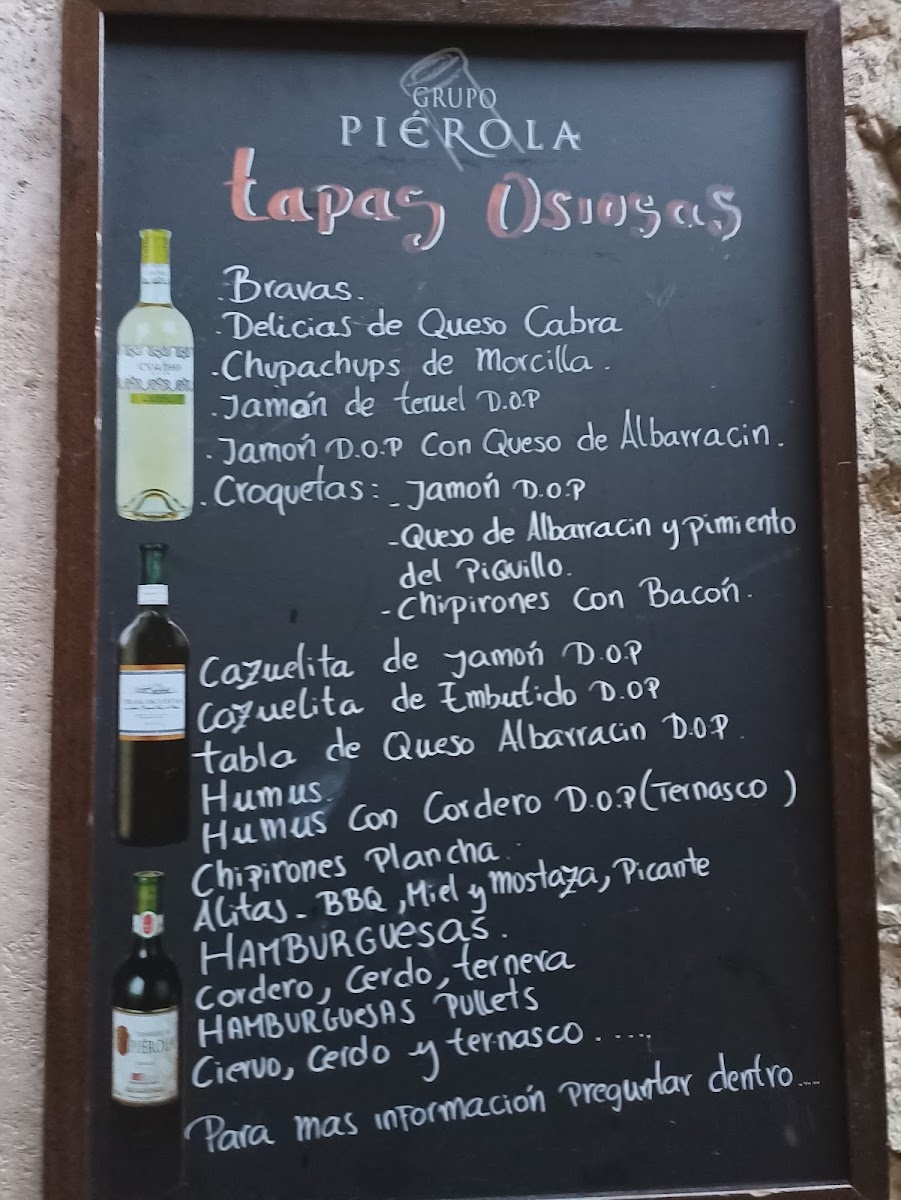 GRUPO
PIÉROLA
tapas Osiosas
.Bravas.
.Delicias de Queso Cabra
-Chupachups de Morcilla.
.Jamón de teruel D.O.P
.Jamón D.O.P Con Queso de Albarracin.
.Croquetas: -Jamón D.O.P
-Queso de Albarracin y pimiento
del PiQuillo.
-Chipirones Con Bacoń.
Cazuelita de Jamoń D.O.P
Cazuelita de Embutido D.O.P
tabla de Queso Albarracin D.O.P.
Humus.
Humus Con Cordero D.O.P (Ternasco)
Chipirones Plancha.
Alitas- BBQ, Miel y Mostaza, Picante
HAMBURGUesas.
Cordero, Cerdo, ternera
HAMBURGUESAS PULLETS
Ciervo, Cerdo y ternasco.....
Para mas información preguntar dentro....
CUATRO
PIÉROLA